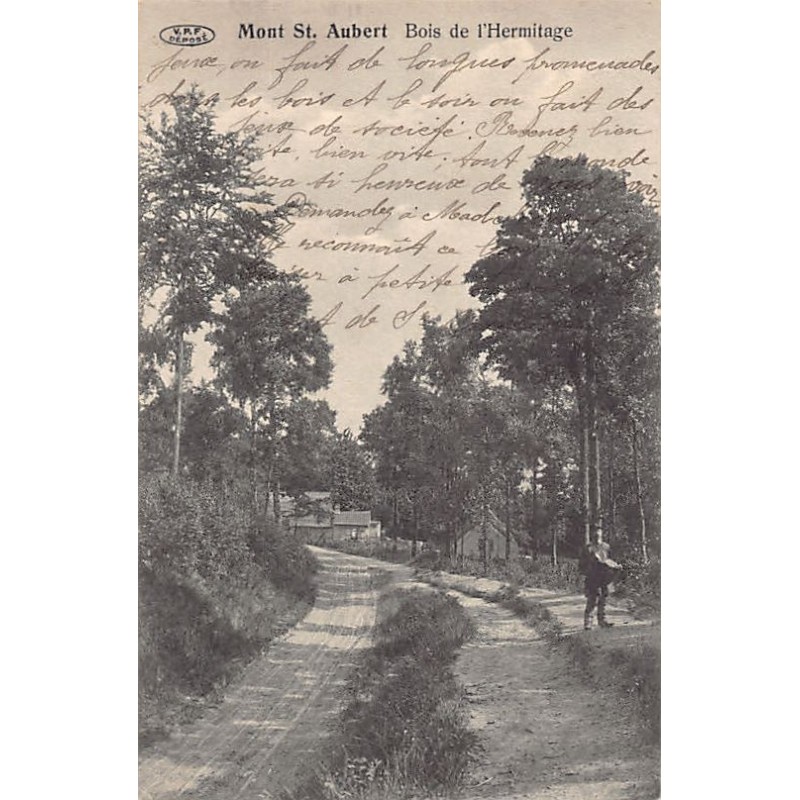 V.P.F.
DÉPOSÉ
Mont St. Aubert Bois de l'Hermitage
jeux, on fait de longues promenades
dans les bois et le soir on fait des
jeux de société. Revenez bien
vite, bien vite, tout le monde
sera si heureux de vous revoir
Demandez à
reconnaît ce
à petite
de